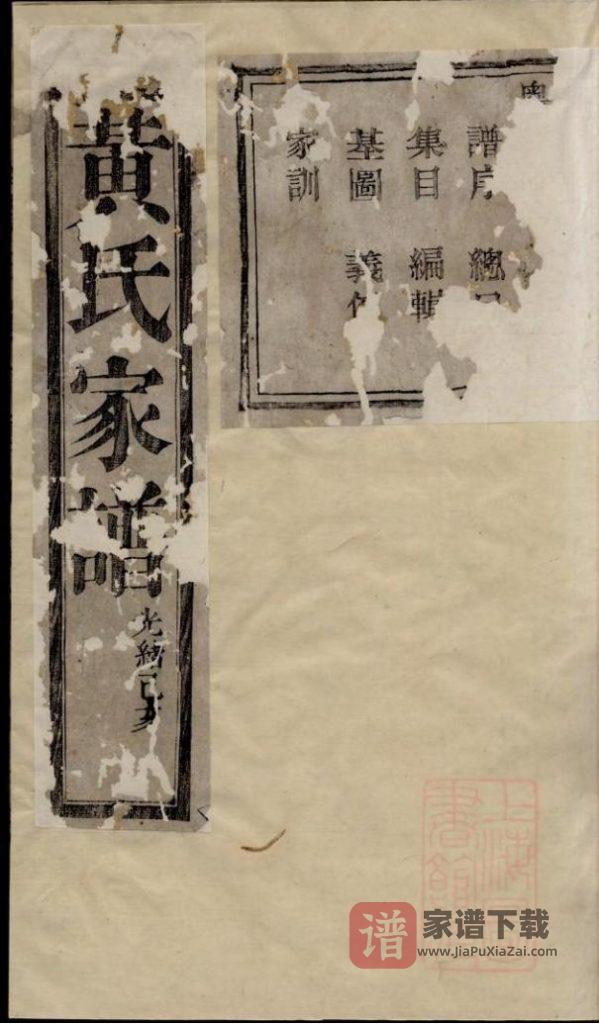 黃氏家譜
光緒己亥
譜序 總
集目 編輯
基圖 義
家訓
上海
書館
谱 家谱下载
www.JiaPuXiaZai.com